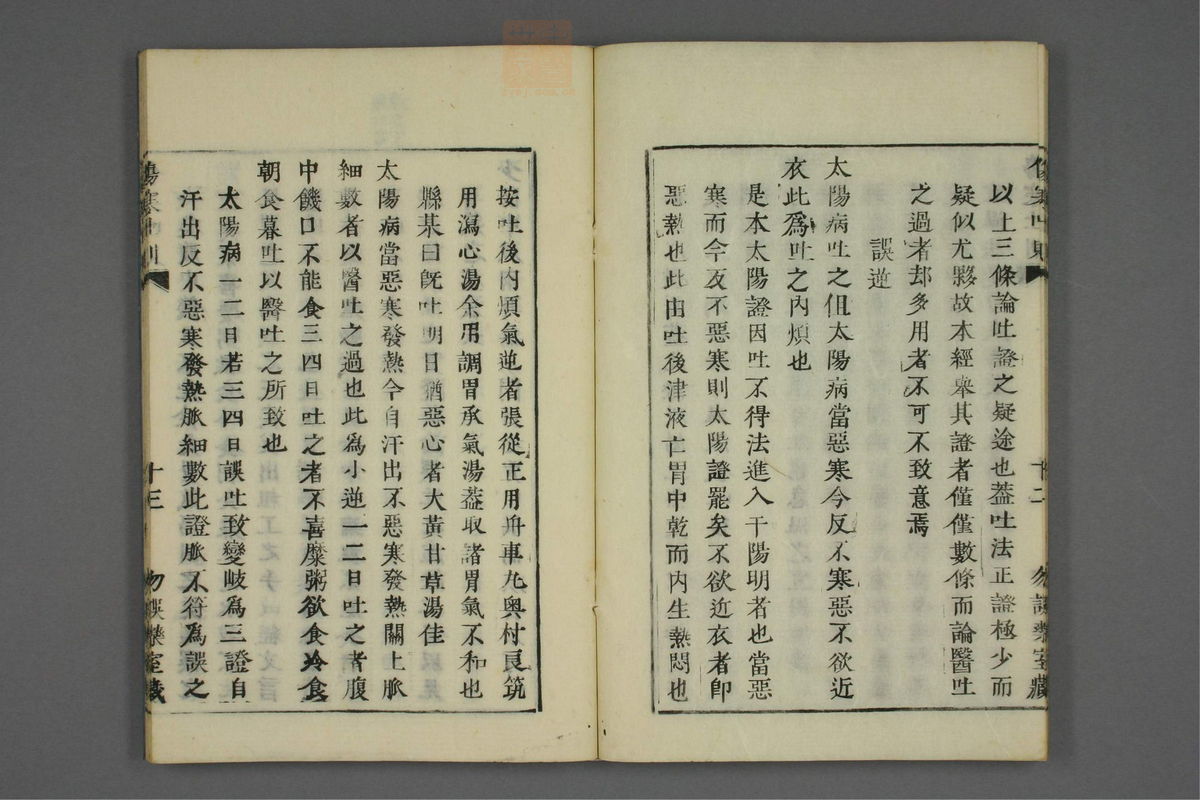 以上三條論吐證之疑途也蓋吐法正證極少而
疑似尤夥故本經舉其證者僅僅數條而論醫吐
之過者却多用者不可不致意焉
誤逆
太陽病吐之但太陽病當惡寒今反不寒惡不欲近
衣此爲吐之內煩也
是本太陽證因吐不得法進入于陽明者也當惡
寒而今反不惡寒則太陽證罷矣不欲近衣者卽
惡熱也此由吐後津液亡胃中乾而內生熱悶也
十二
按吐後內煩氣逆者張從正用舟車丸奧村良筑
用瀉心湯余用調胃承氣湯葢取諸胃氣不和也
縣某曰旣吐明日猶惡心者大黃甘草湯佳
太陽病當惡寒發熱今自汗出不惡寒發熱關上脈
細數者以醫吐之過也此爲小逆一二日吐之者腹
中饑口不能食三四日吐之者不喜糜粥欲食冷食
朝食暮吐以醫吐之所致也
太陽病一二日若三四日誤吐致變岐爲三證自
汗出反不惡寒發熱脈細數此證脈不符爲誤之
十三